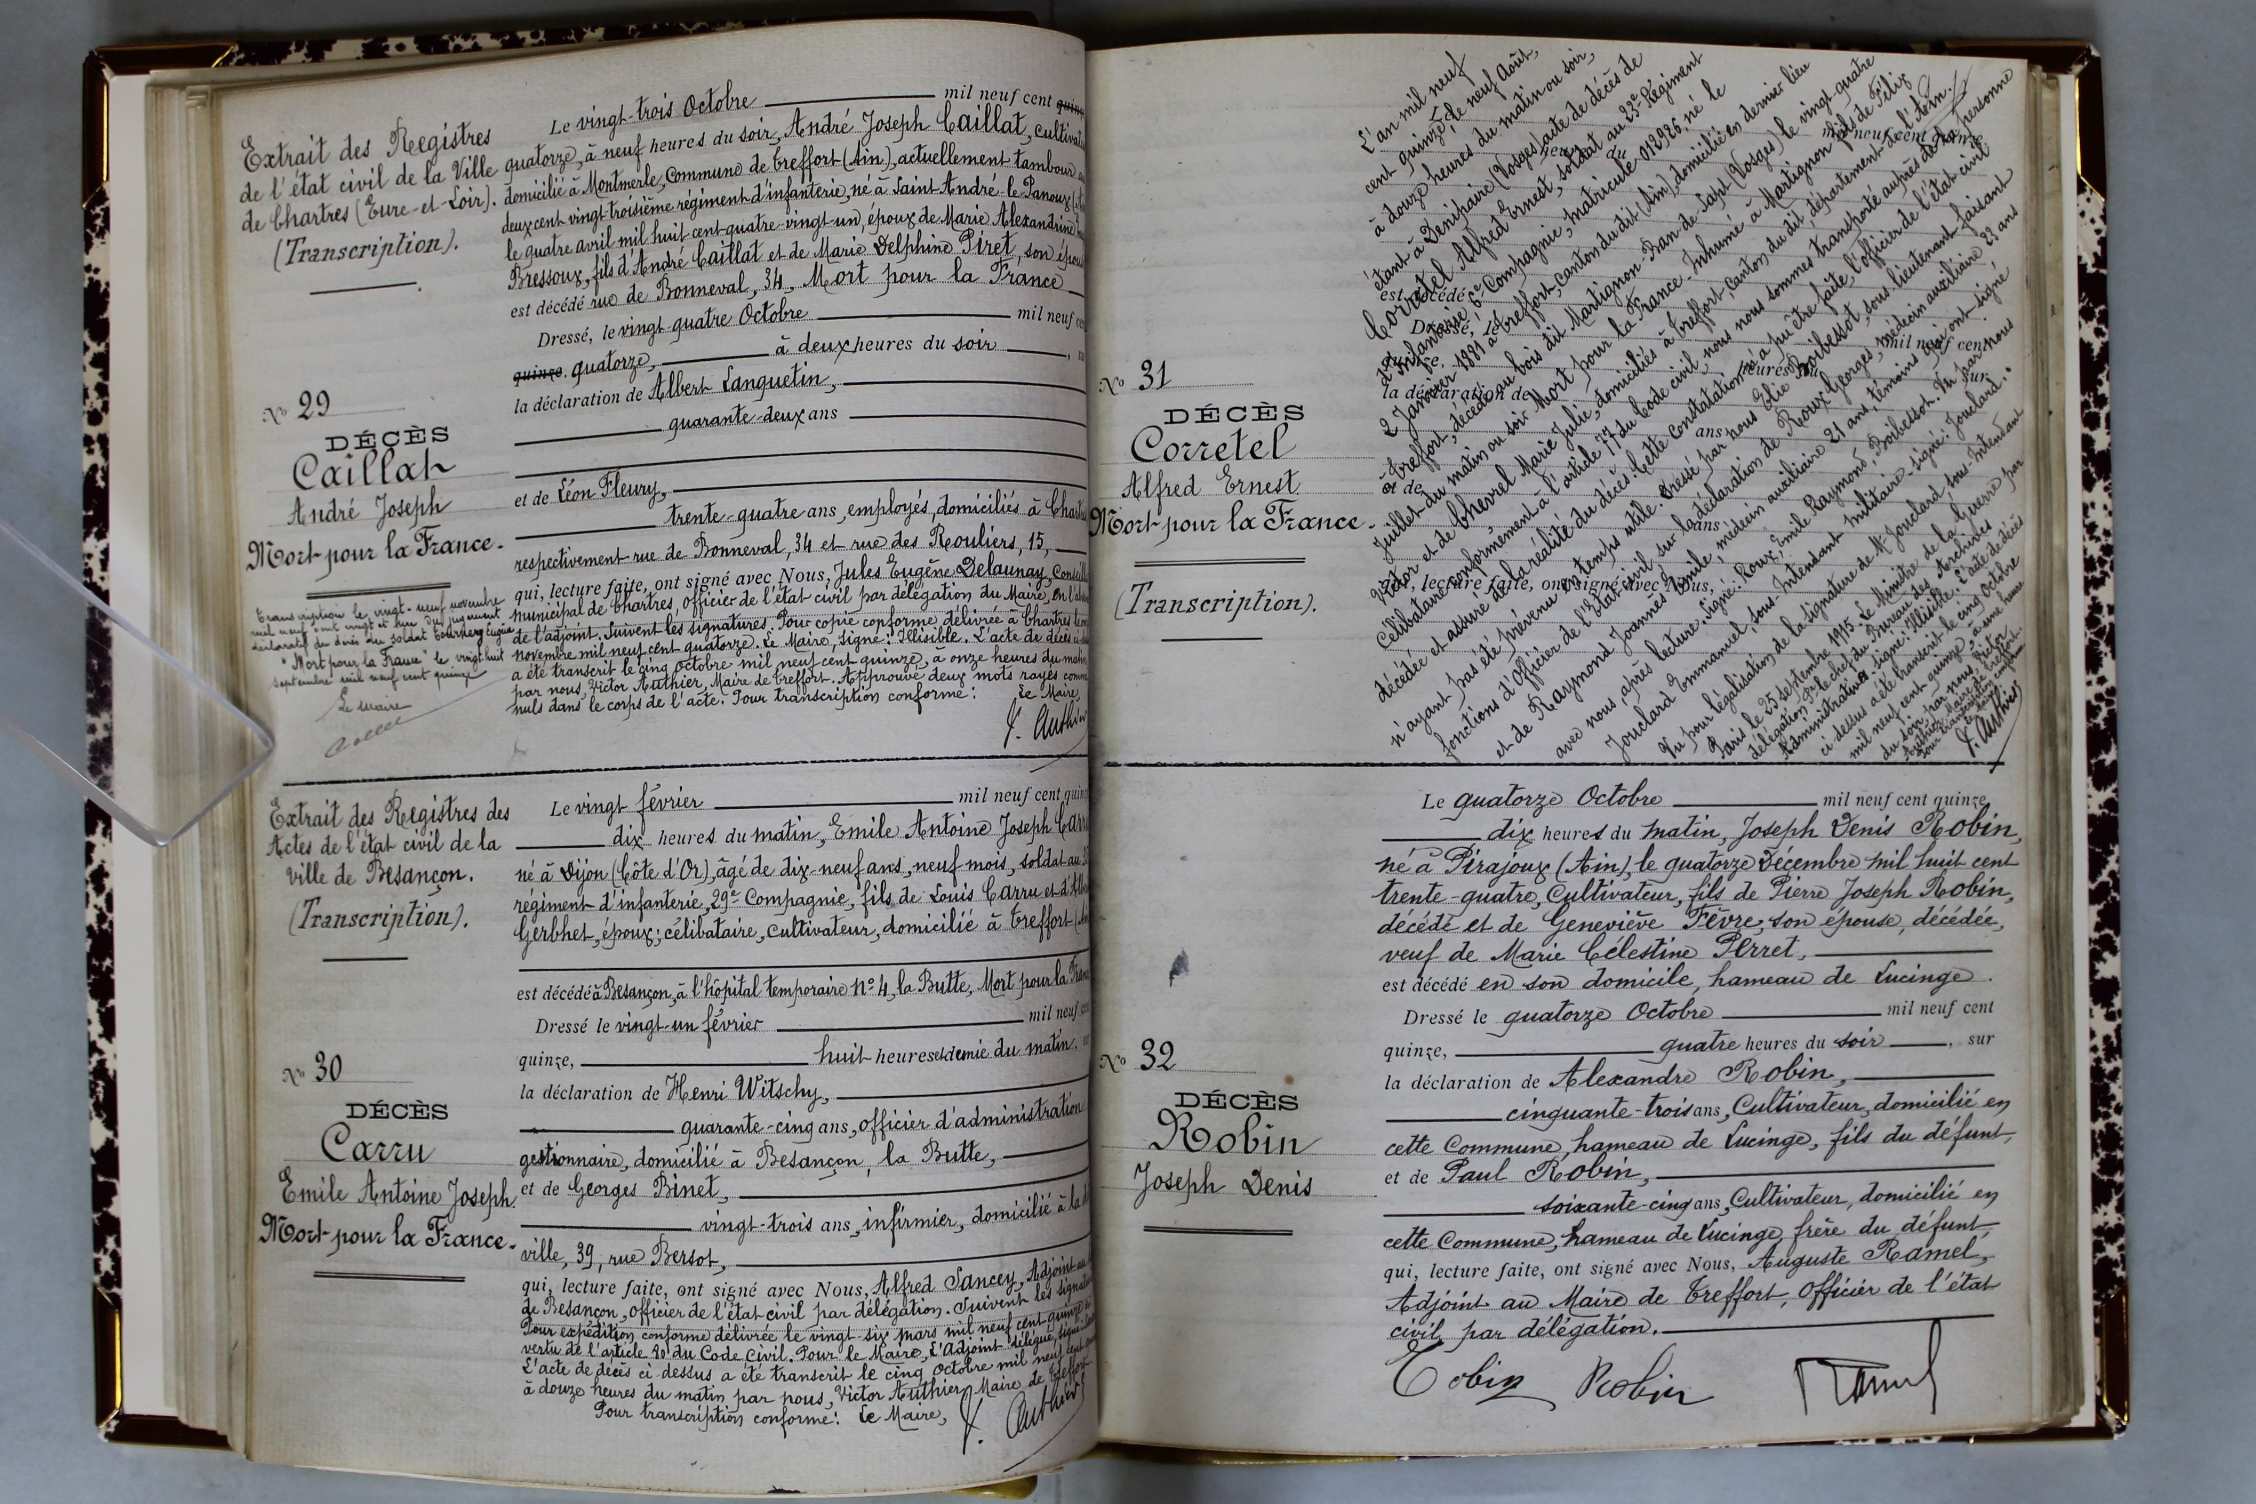 Extrait des Registres
de l'état civil de la Ville
de Chartres (Eure-et-Loir).
(Transcription).
No 29
DÉCÈS
Caillat
André Joseph
Mort pour la France.
Transcription le vingt-neuf novembre
mil neuf cent vingt et un du jugement
déclaratif de décès du soldat
"Mort pour la France" le vingt huit
septembre mil neuf cent quinze
Le Maire
Le vingt-trois Octobre mil neuf cent quinze
quatorze, à neuf heures du soir, André Joseph Caillat, cultivat
domicilié à Montmerle, Commune de Treffort (Ain), actuellement tambour au
deux cent vingt troisième régiment d'infanterie, né à Saint André-le-Panoux
le quatre avril mil huit cent quatre-vingt-un, époux de Marie Alexandrine
Bressoux, fils d'André Caillat et de Marie Delphine Piret, son épou
est décédé rue de Bonneval, 34, Mort pour la France
Dressé, le vingt-quatre Octobre mil neuf cen
quinze. quatorze, à deux heures du soir
la déclaration de Albert Languetin,
quarante-deux ans
et de Léon Fleury,
trente-quatre ans, employés, domiciliés à Chart
respectivement rue de Bonneval, 34 et rue des Rouliers, 15,
qui, lecture faite, ont signé avec Nous, Jules Eugène Delaunay, Conseill
municipal de Chartres, officier de l'état civil par délégation du Maire, en l'abs
de l'adjoint. Suivent les signatures. Pour copie conforme délivrée à Chartres le
novembre mil neuf cent quatorze. Le Maire, signé: Illisible. L'acte de décès ci-dess
a été transcrit le cinq octobre mil neuf cent quinze, à onze heures du matin
par nous, Victor Authier, Maire de Treffort. Approuvé deux mots rayés comme
nuls dans le corps de l'acte. Pour transcription conforme: Le Maire,
V. Authier
Extrait des Registres des
Actes de l'état civil de la
ville de Besançon.
(Transcription).
No 30
DÉCÈS
Carru
Emile Antoine Joseph
Mort pour la France.
Le vingt février mil neuf cent quin
dix heures du matin, Emile Antoine Joseph Carr
né à Dijon (Côte d'Or), âgé de dix-neuf ans, neuf mois, soldat au
régiment d'infanterie, 29e Compagnie, fils de Louis Carru et d'Alb
Gerbhet, époux; célibataire, cultivateur, domicilié à Treffort (Ain
est décédé à Besançon, à l'hôpital temporaire No 4, la Butte, Mort pour la Franc
Dressé le vingt-un février mil neuf cen
quinze, huit heures et demie du matin,
la déclaration de Henri Witschy,
quarante-cinq ans, officier d'administration
gestionnaire, domicilié à Besançon, la Butte,
et de Georges Binet,
vingt-trois ans, infirmier, domicilié à la d
ville, 39, rue Bersot,
qui, lecture faite, ont signé avec Nous, Alfred Sancey, Adjoint au
de Besançon, officier de l'état civil par délégation. Suivent les signatu
Pour expédition conforme délivrée le vingt-six mars mil neuf cent quinze en
vertu de l'article 80 du Code Civil. Pour le Maire, L'Adjoint délégué, signé:
L'acte de décès ci dessus a été transcrit le cinq octobre mil neuf cent quin
à douze heures du matin par nous, Victor Authier, Maire de Treffort
Pour transcription conforme: Le Maire,
V. Authier
No 31
DÉCÈS
Corretel
Alfred Ernest
Mort pour la France.
(Transcription).
L'an mil neuf
cent quinze, le neuf Août,
à douze heures du matin ou soir,
étant à Denipaire (Vosges) acte de décès de
Corretel Alfred Ernest, soldat au 23e Régiment
d'Infanterie 6e Compagnie, matricule 012986, né le
2 Janvier 1881 à Treffort, canton du dit (Ain), domicilié en dernier lieu
à Treffort, décédé au bois dit Martignon Ban-de-Sapt (Vosges) le vingt-quatre
Juillet du matin ou soir Mort pour la France. Inhumé à Martignon fils de Félix
Victor et de Chevrel Marie Julie, domiciliés à Treffort, canton du dit, département de l'Ain.
Célibataire conformément à l'article 77 du Code civil, nous nous sommes transporté auprès de la personne
décédée et assuré de la réalité du décès. Cette constatation n'a pu être faite, l'officier de l'état civil
n'ayant pas été prévenu en temps utile. Dressé par nous Elie Boibessot, sous lieutenant faisant
fonctions d'Officier de l'Etat-civil, sur la déclaration de Roux Georges, médecin auxiliaire 23 ans
et de Raymond Joannès Emile, médecin auxiliaire 21 ans, témoins qui ont signé
avec nous, après lecture. Signé: Roux, Emile Raymond, Boibessot. Vu par nous
Jouclard Emmanuel, sous-Intendant militaire-signé: Jouclard.
Vu pour légalisation de la signature de Mr Jouclard sous-Intendant
Paris le 25 septembre 1915. Le Ministre de la Guerre par
délégation P. le chef du Bureau des Archives
Administratives signé: Illisible. L'acte de décès
ci dessus a été transcrit le cinq Octobre
mil neuf cent quinze, à une heure
du soir par nous, Victor
Authier, Maire de Treffort.
Pour transcription conforme
Le Maire
V. Authier
mil neuf cent quinze
heures du
est décédé
Dressé, le
mil neuf cent
heures du
sur
la déclaration de
ans
et de
ans
qui, lecture faite, ont signé avec Nous,
No 32
DÉCÈS
Robin
Joseph Denis
Le quatorze Octobre mil neuf cent quinze,
dix heures du matin, Joseph Denis Robin,
né à Pirajoux (Ain), le quatorze Décembre mil huit cent
trente-quatre, Cultivateur, fils de Pierre Joseph Robin,
décédé et de Geneviève Fèvre, son épouse, décédée,
veuf de Marie Célestine Perret,
est décédé en son domicile, hameau de Lucinge.
Dressé le quatorze Octobre mil neuf cent
quinze, quatre heures du soir, sur
la déclaration de Alexandre Robin,
cinquante-trois ans, Cultivateur, domicilié en
cette Commune, hameau de Lucinge, fils du défunt,
et de Paul Robin,
soixante-cinq ans, Cultivateur, domicilié en
cette Commune, hameau de Lucinge, frère du défunt,
qui, lecture faite, ont signé avec Nous, Auguste Ramel,
Adjoint au Maire de Treffort, Officier de l'état
civil par délégation.
Robin Robin Ramel